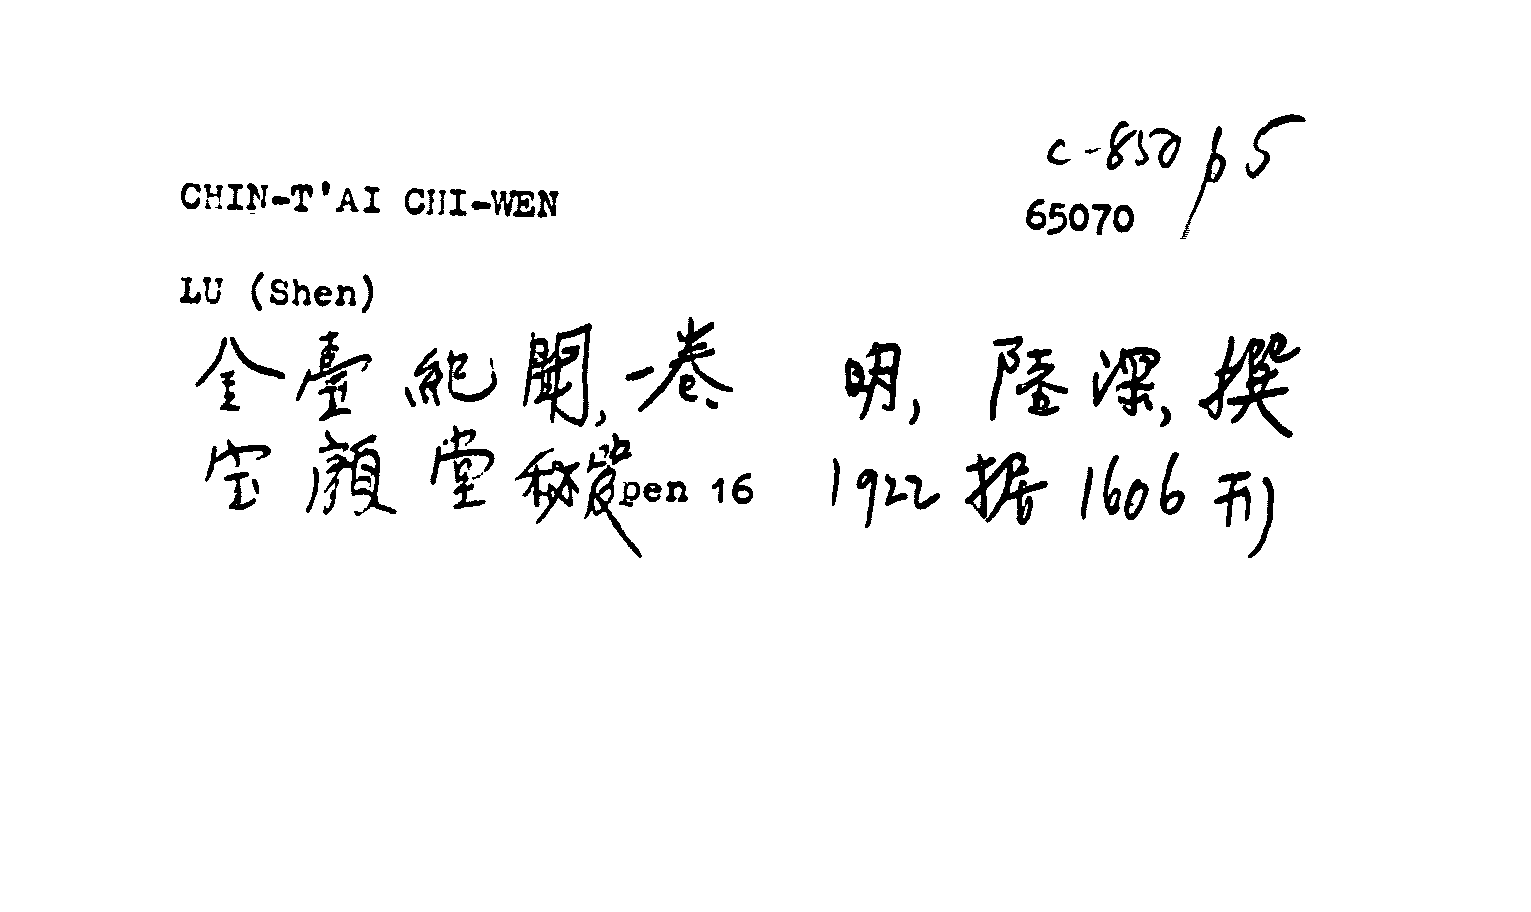 C-850 p5
CHIN-T'AI CHI-WEN
65070
LU (Shen)
金臺紀聞,一卷 明,陸深,撰
宝顏堂秘笈pen 16 1922 据 1606 刊